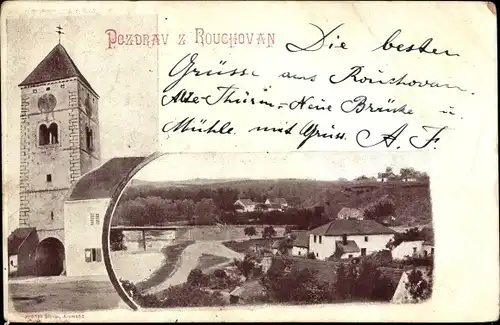 Pozdrav z Rouchovan
Die besten
Grüsse aus Rouchovan.
Alte-Thurm-Neue Brücke u.
Mühle. mit Gruss. A. F.